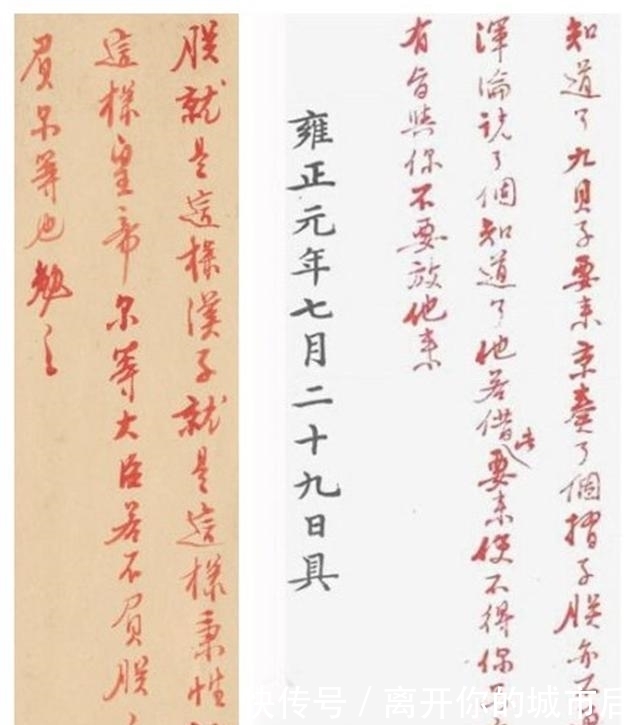 知道了九貝子要来京奏了個摺子朕亦
渾淪說了個知道了他若借此要来使不得你
有旨與你不要放他来
雍正元年七月二十九日具
朕就是這樣漢子就是這樣秉性
這樣皇帝尔等大臣若不負朕
負尔等也勉之
快传号 / 离开你的城市后